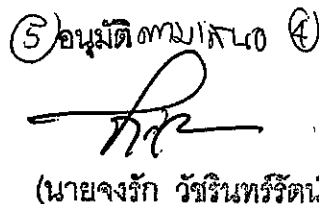 ⑤ อนุมัติตามเสนอ ④
(นายจงรัก วัชรินทร์รัตน์